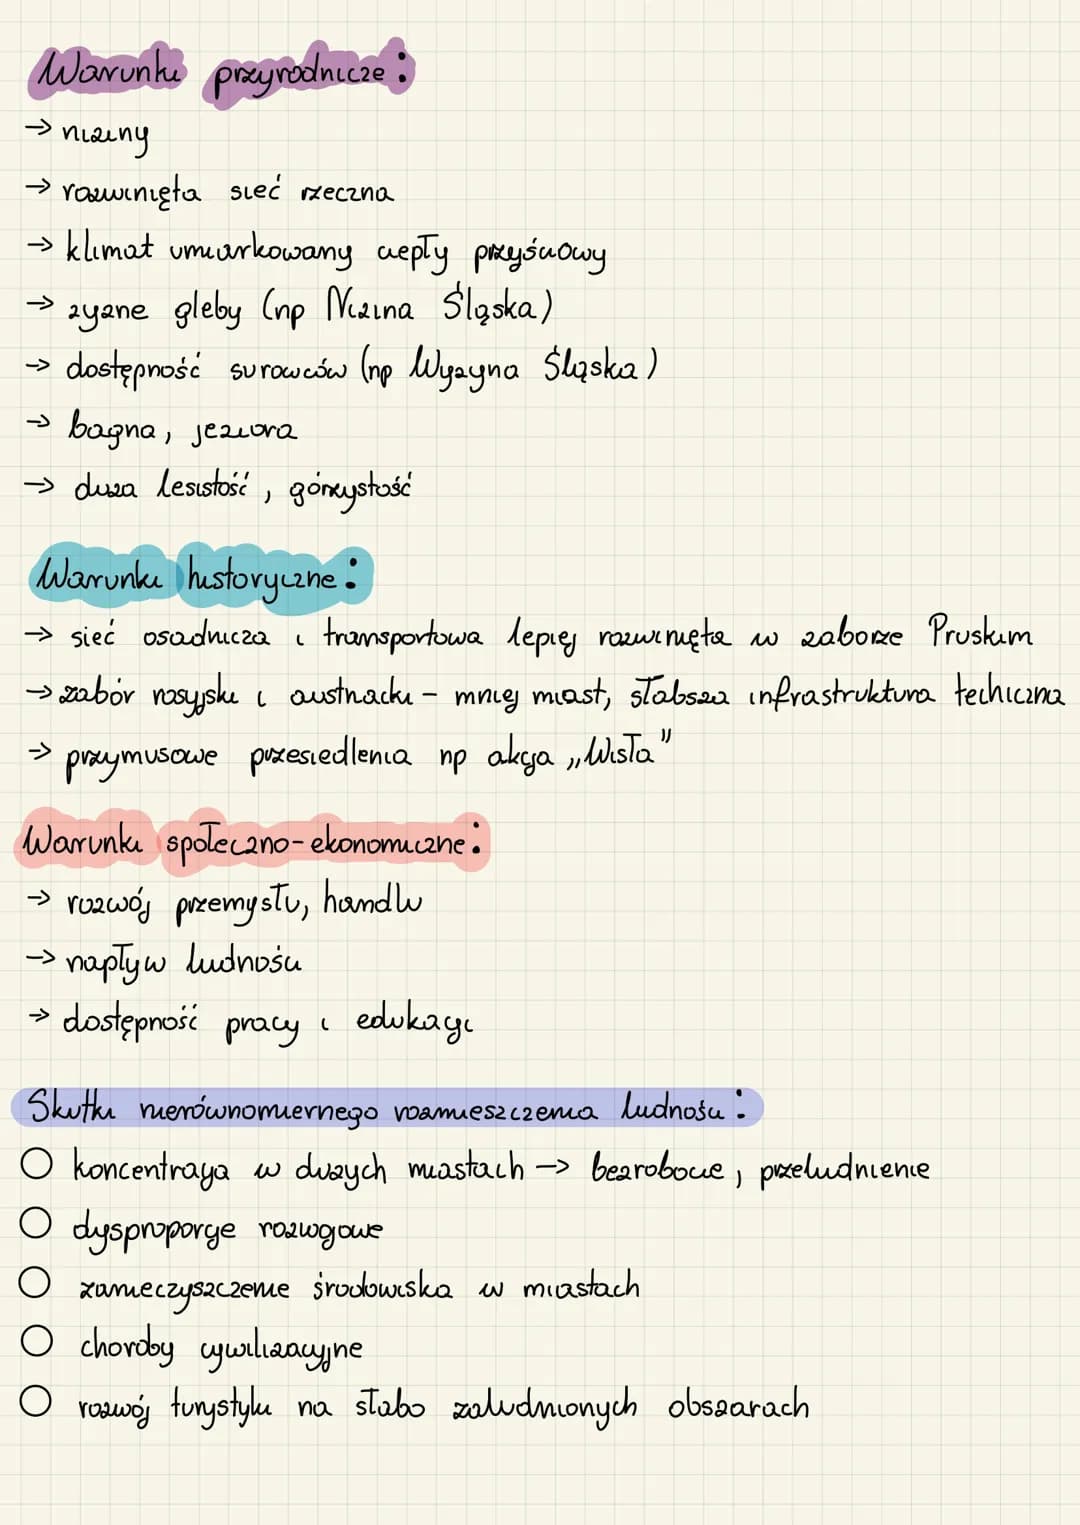 Warunki przyrodnicze:
→ niziny
→ rozwinięta sieć rzeczna
→ klimat umiarkowany ciepły przyściowy
→ żyzne gleby (np Nizina Śląska)
→ dostępność surowców (np Wyżyna Śląska)
→ bagna, jeziora
→ duża lesistość, górzystość
Warunki historyczne:
→ sieć osadnicza i transportowa lepiej rozwinięta w zaborze Pruskim
→ zabór rosyjski i austriacki - mniej miast, słabsza infrastruktura techiczna
→ przymusowe przesiedlenia np akcja „Wisła”
Warunki społeczno-ekonomiczne:
→ rozwój przemysłu, handlu
→ napływ ludności
→ dostępność pracy i edukacji
Skutki nierównomiernego rozmieszczenia ludności:
○ koncentracja w dużych miastach → bezrobocie, przeludnienie
○ dysproporcje rozwojowe
○ zanieczyszczenie środowiska w miastach
○ choroby cywilizacyjne
○ rozwój turystyki na słabo zaludnionych obszarach